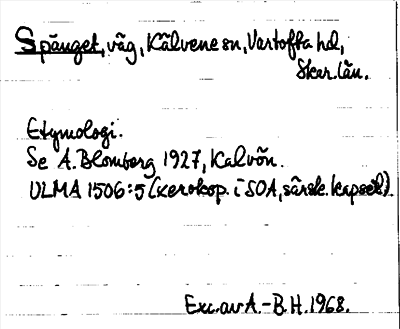 Spånget, väg, Kälvene sn, Vartofta hd,
Skar. län.
Etymologi.
Se A. Blomberg 1927, Kalvön.
ULMA 1506:5 (xerokop. i SOA, särsk. kapsel).
Exc. av A.-B.H. 1968.